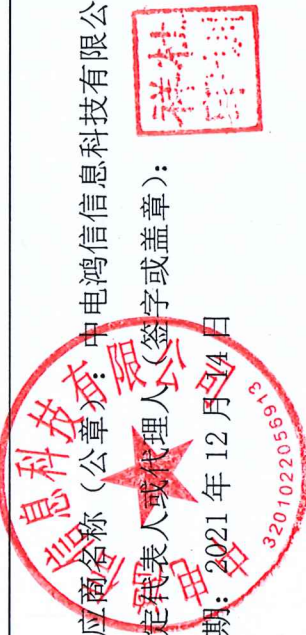 应商名称（公章）：中电鸿信信息科技有限公
定代表人或代理人（签字或盖章）：
期：2021 年 12 月 14 日
中电鸿信信息科技有限公司
3201022056913